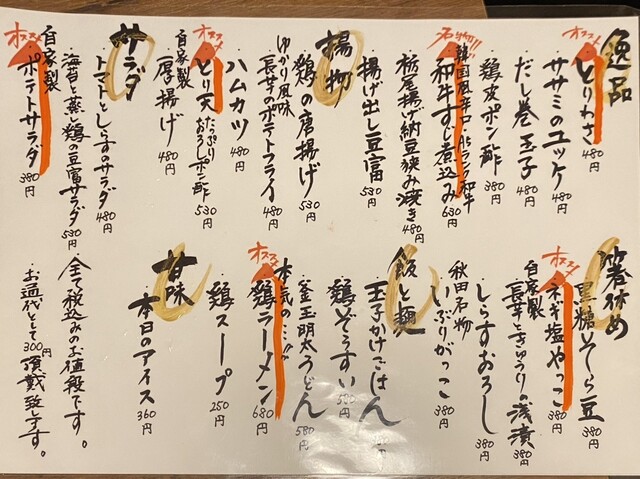 逸品
オススメ
とりわさ 480円
ササミのユッケ 480円
だし巻玉子 480円
鶏皮ポン酢 380円
名物!!
韓国風辛口・A5ランク和牛
和牛すじ煮込み 630円
栃尾揚げ納豆挟み焼き 480円
揚げ出し豆富 530円
揚物
鶏の唐揚げ 530円
ゆかり風味
長芋のポテトフライ 480円
ハムカツ 480円
オススメ
とり天 たっぷりおろしポン酢 530円
自家製
厚揚げ 480円
サラダ
トマトとしらすのサラダ 480円
海苔と蒸し鶏の豆富サラダ 530円
オススメ
自家製
ポテトサラダ 380円
箸休め
黒糖そら豆 380円
オススメ
ネギ塩やっこ 380円
自家製
長芋ときゅうりの浅漬 380円
しらすおろし 380円
秋田名物
いぶりがっこ 380円
飯と麺
玉子かけごはん
鶏ぞうすい 580円
釜玉明太うどん 580円
本気の…!!
オススメ
鶏ラーメン 680円
鶏スープ 250円
甘味
本日のアイス 360円
全て税込みのお値段です。
お通代として300円頂戴致します。